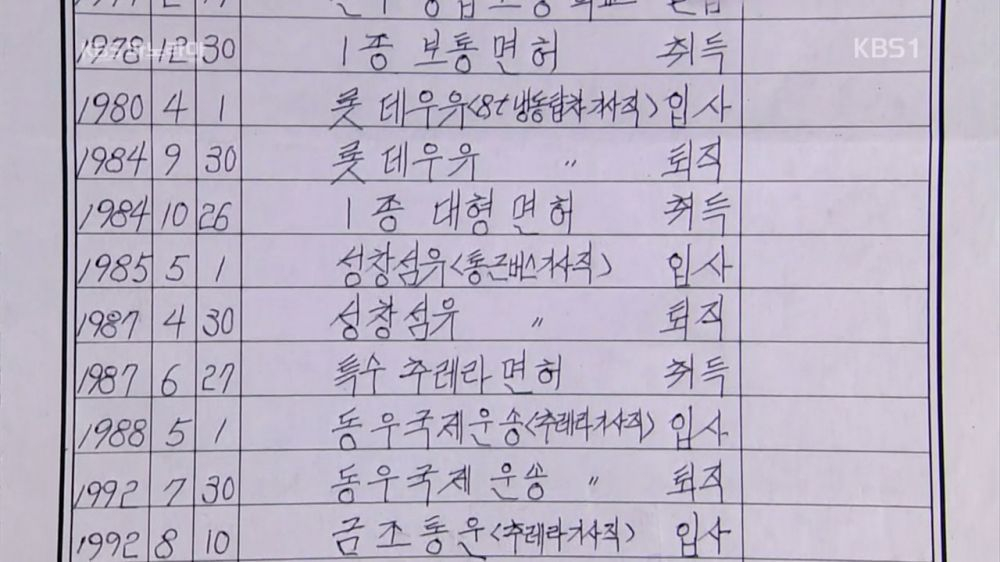 1978 12 30 1종 보통면허 취득
KBS1
1980 4 1 롯데우유<8t냉동탑차기사직> 입사
1984 9 30 롯데우유 〃 퇴직
1984 10 26 1종 대형면허 취득
1985 5 1 성창섬유<통근버스기사직> 입사
1987 4 30 성창섬유 〃 퇴직
1987 6 27 특수 추레라면허 취득
1988 5 1 동우국제운송<추레라기사직> 입사
1992 7 30 동우국제운송 〃 퇴직
1992 8 10 금조통운<추레라기사직> 입사